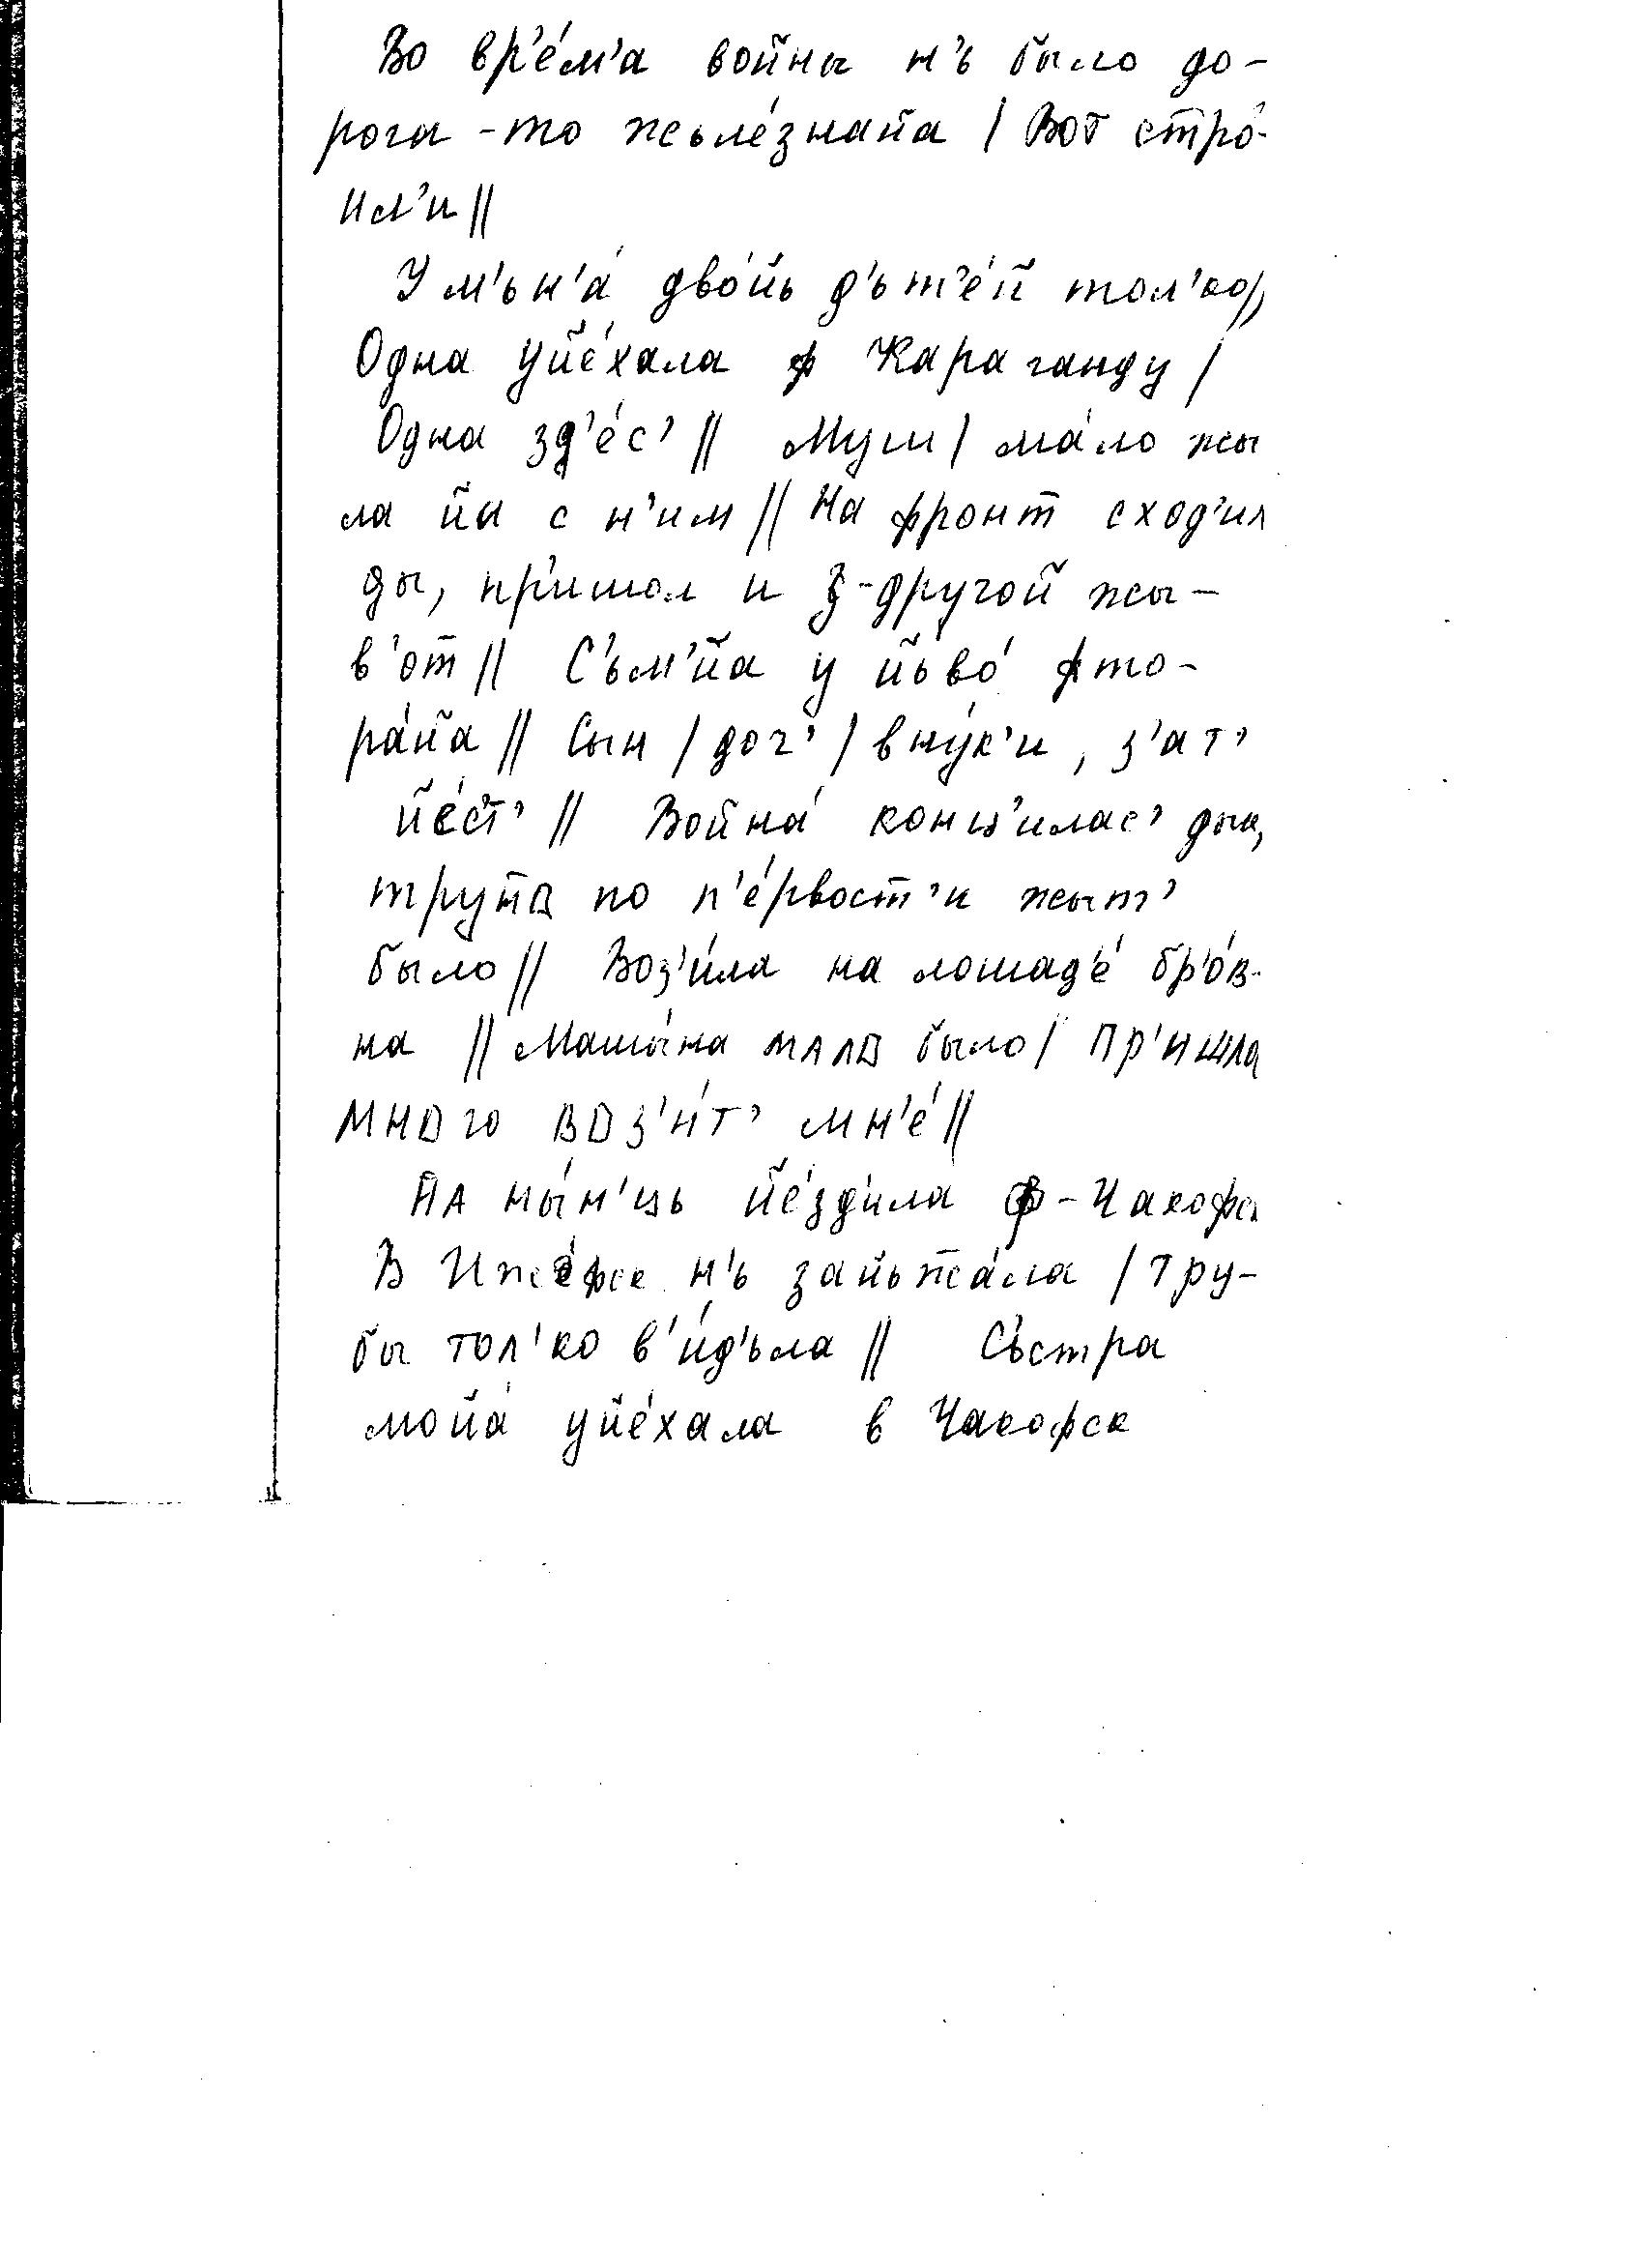 Во вр'е́м'а войны н'ь было до-
рога-то жьле́знайа / Вот стро́-
ил'и //
У м'ьн'а́ дво́йь д'ьт'е́й тол'ко //
Одна уйе́хала ф Караганду /
Одна зд'е́с' // Муш / ма́ло жы
ла йа с н'им // На фронт сход'ил
ды, пр'ишол и з-другой жы-
в'от // С'ьм'йа у йьво́ фто-
ра́йа // Сын / доч' / вну́к'и, з'ат'
йе́ст' // Война́ конц'илас' дык,
трупно по п'е́рвост'и жыт'
было // Воз'и́ла на лошад'е́ бр'о́в-
на // Машы́на мало было / Пр'ишла
много воз'и́т' мн'е́ //
Йа ны́н'ць йе́зд'ила ф-Чакофск
В Иже́фск н'ь зайьжа́ла / Тру-
бы тол'ко в'и́д'ьла // С'ьстра
мойа́ уйе́хала в Чакофск